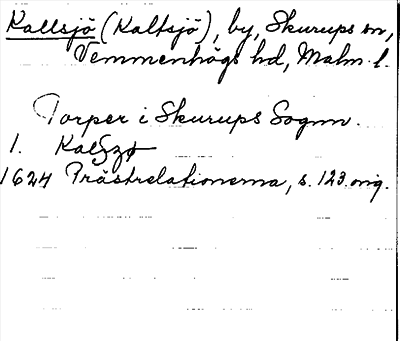 Kallsjö (Kaltsjö), by, Skurups sn,
Vemmenhögs hd, Malm. l.
Torper i Skurups Sognn.
1. KalSzø
1624 Prästrelationerna, s. 123. orig.